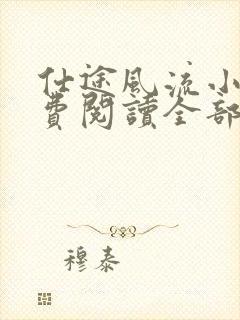 仕途風流小
費閱讀全部
穆泰